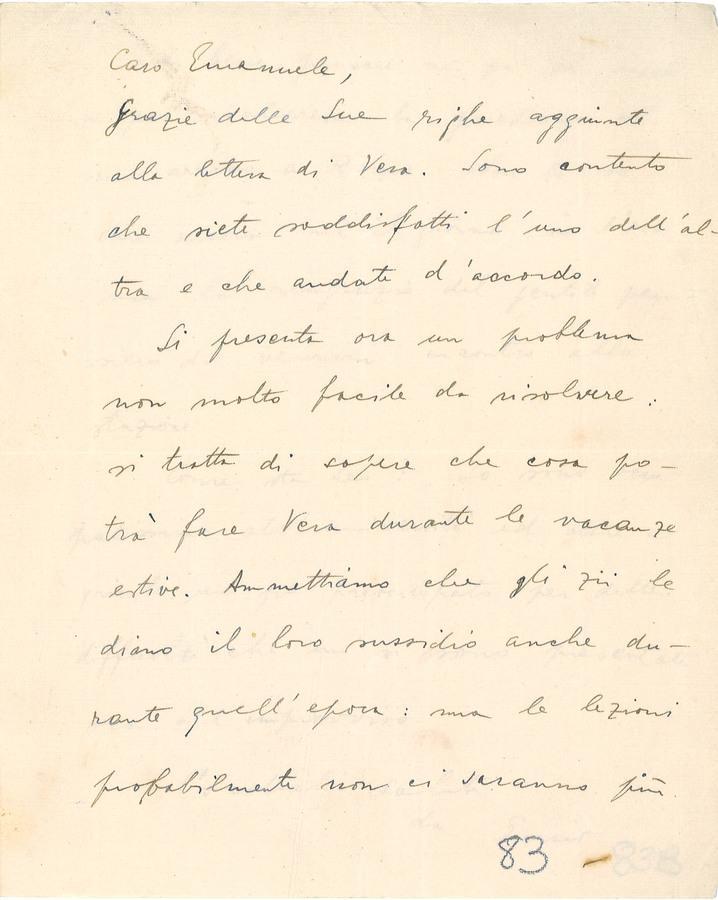 Caro Emanuele,
Grazie delle Sue righe aggiunte
alla lettera di Vera. Sono contento
che siete soddisfatti l'uno dell'al-
tra e che andate d'accordo.
Si presenta ora un problema
non molto facile da risolvere:
si tratta di sapere che cosa po-
trà fare Vera durante le vacanze
estive. Ammettiamo che gli zii le
diano il loro sussidio anche du-
rante quell'epoca: ma le lezioni
probabilmente non ci saranno più.
83